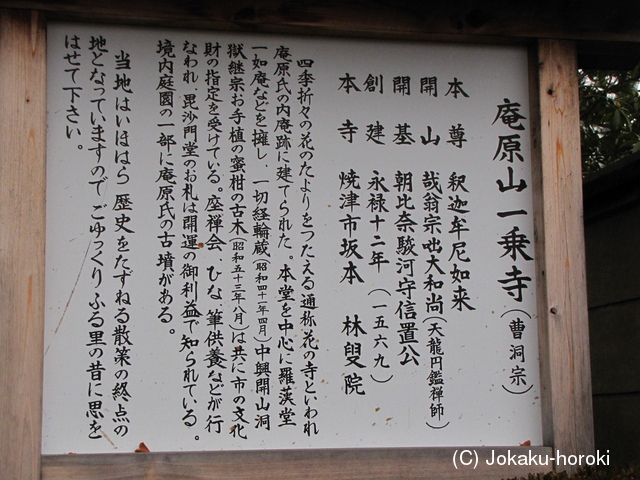 庵原山一乗寺(曹洞宗)
本尊 釈迦牟尼如来
開山 哉翁宗咄大和尚(天龍円鑑禅師)
開基 朝比奈駿河守信置公
創建 永禄十二年(一五六九)
本寺 焼津市坂本 林叟院
四季折々の花のたよりをつたえる通称花の寺といわれ
庵原氏の内庵跡に建てられた。本堂を中心に羅漢堂
一如庵などを擁し、一切経輪蔵(昭和四十一年四月)中興開山洞
獄継宗お手植の蜜柑の古木(昭和五十三年八月)は共に市の文化
財の指定を受けている。座禅会、ひな、筆供養などが行
なわれ、毘沙門堂のお札は開運の御利益で知られている。
境内庭園の一部に庵原氏の古墳がある。
当地はいほはら歴史をたずねる散策の終点の
地となっていますので、ごゆっくりふる里の昔に思を
はせて下さい。
(C) Jokaku-horoki